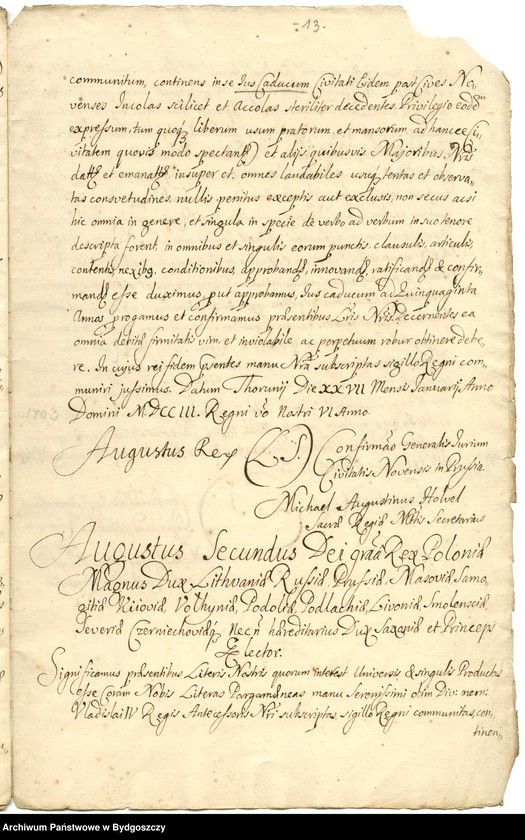 - 13.
communitum, continens in se Jus Caducum Civitati Eidem post Cives No,
venses Incolas scilicet et Accolas steriliter decedentes, Privilegio eodem
expressum, tum quoq liberum usum pratorum et mansorum, ad hance Ci,
26
vitatem quovis modo spectant et alijs quibusvis Majoribus Nris
datis et emanatis insuper et omnes laudabiles usus tentas et observa,,
tas consvetudines nullis penitus exceptis aut exclusis, non secus acsi
hic omnia in genere, et singula in specie de verbo ad verbum in suo tenore
descripta forent, in omnibus et singulis eorum punctis, clausulis, articulis,
contentis nexibq, conditionibus, approband, innovand, ratificand & confir,
mand esse duximus, put approbamus, Jus caducum ad Quinquaginta
Annos progamus et confirmamus præsentibus Lris Nris Decernentes ea
omnia debitæ firmitatis vim et inviolabile ac perpetuum robur obtinere debe,
re. In cujus rei fidem psentes manu Nra subscriptas sigillo Regni com,
muniri jussimus. Datum Thorunij Die XXVII Mensis Januarij Anno
1703
Domini MDCCIII. Regni vo Nostri VI Anno
Augustus Rex (L.S.) Confirmao Generalis Jurium
Civitatis Novensis in Prussia
Michael Augustinus Holvel
Sacræ Regiæ Mttis Secretarius
Augustus Secundus Dei gratia Rex Poloniæ
Magnus Dux Lithvaniæ Russiæ Prussiæ, Masoviæ Samo,
gitiæ Kijoviæ, Volhyniæ, Podoliæ Podlachiæ, Livoniæ, Smolensciæ,
Severiæ Czerniechoviæq, Necn hæreditarius Dux Saxoniæ et Princeps
Elector.
Significamus præsentibus Literis Nostris quorum interest Universis & singulis Productas
esse Coram Nobis Literas Pargameneas manu Serenissimi olim Divi nem:
Vladislai IV Regis Antecessoris Nri subscriptas, sigillo Regni communitas, con,
tinen,,
Archiwum Państwowe w Bydgoszczy